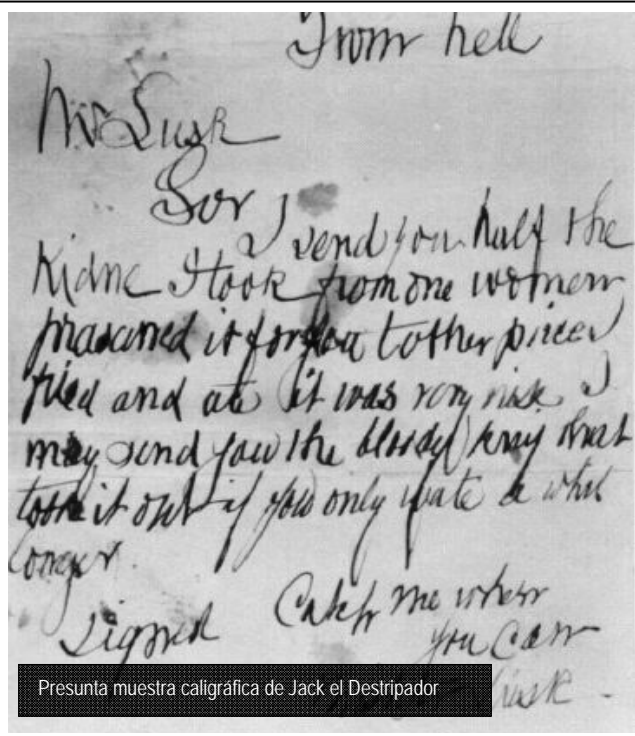 From hell
Mr Lusk
Sor
I send you half the
Kidne I took from one women
prasarved it for you tother piece I
fried and ate it was very nise I
may send you the bloody knif that
took it out if you only wate a whil
longer
signed
Catch me when
you can
Lusk
Presunta muestra caligráfica de Jack el Destripador